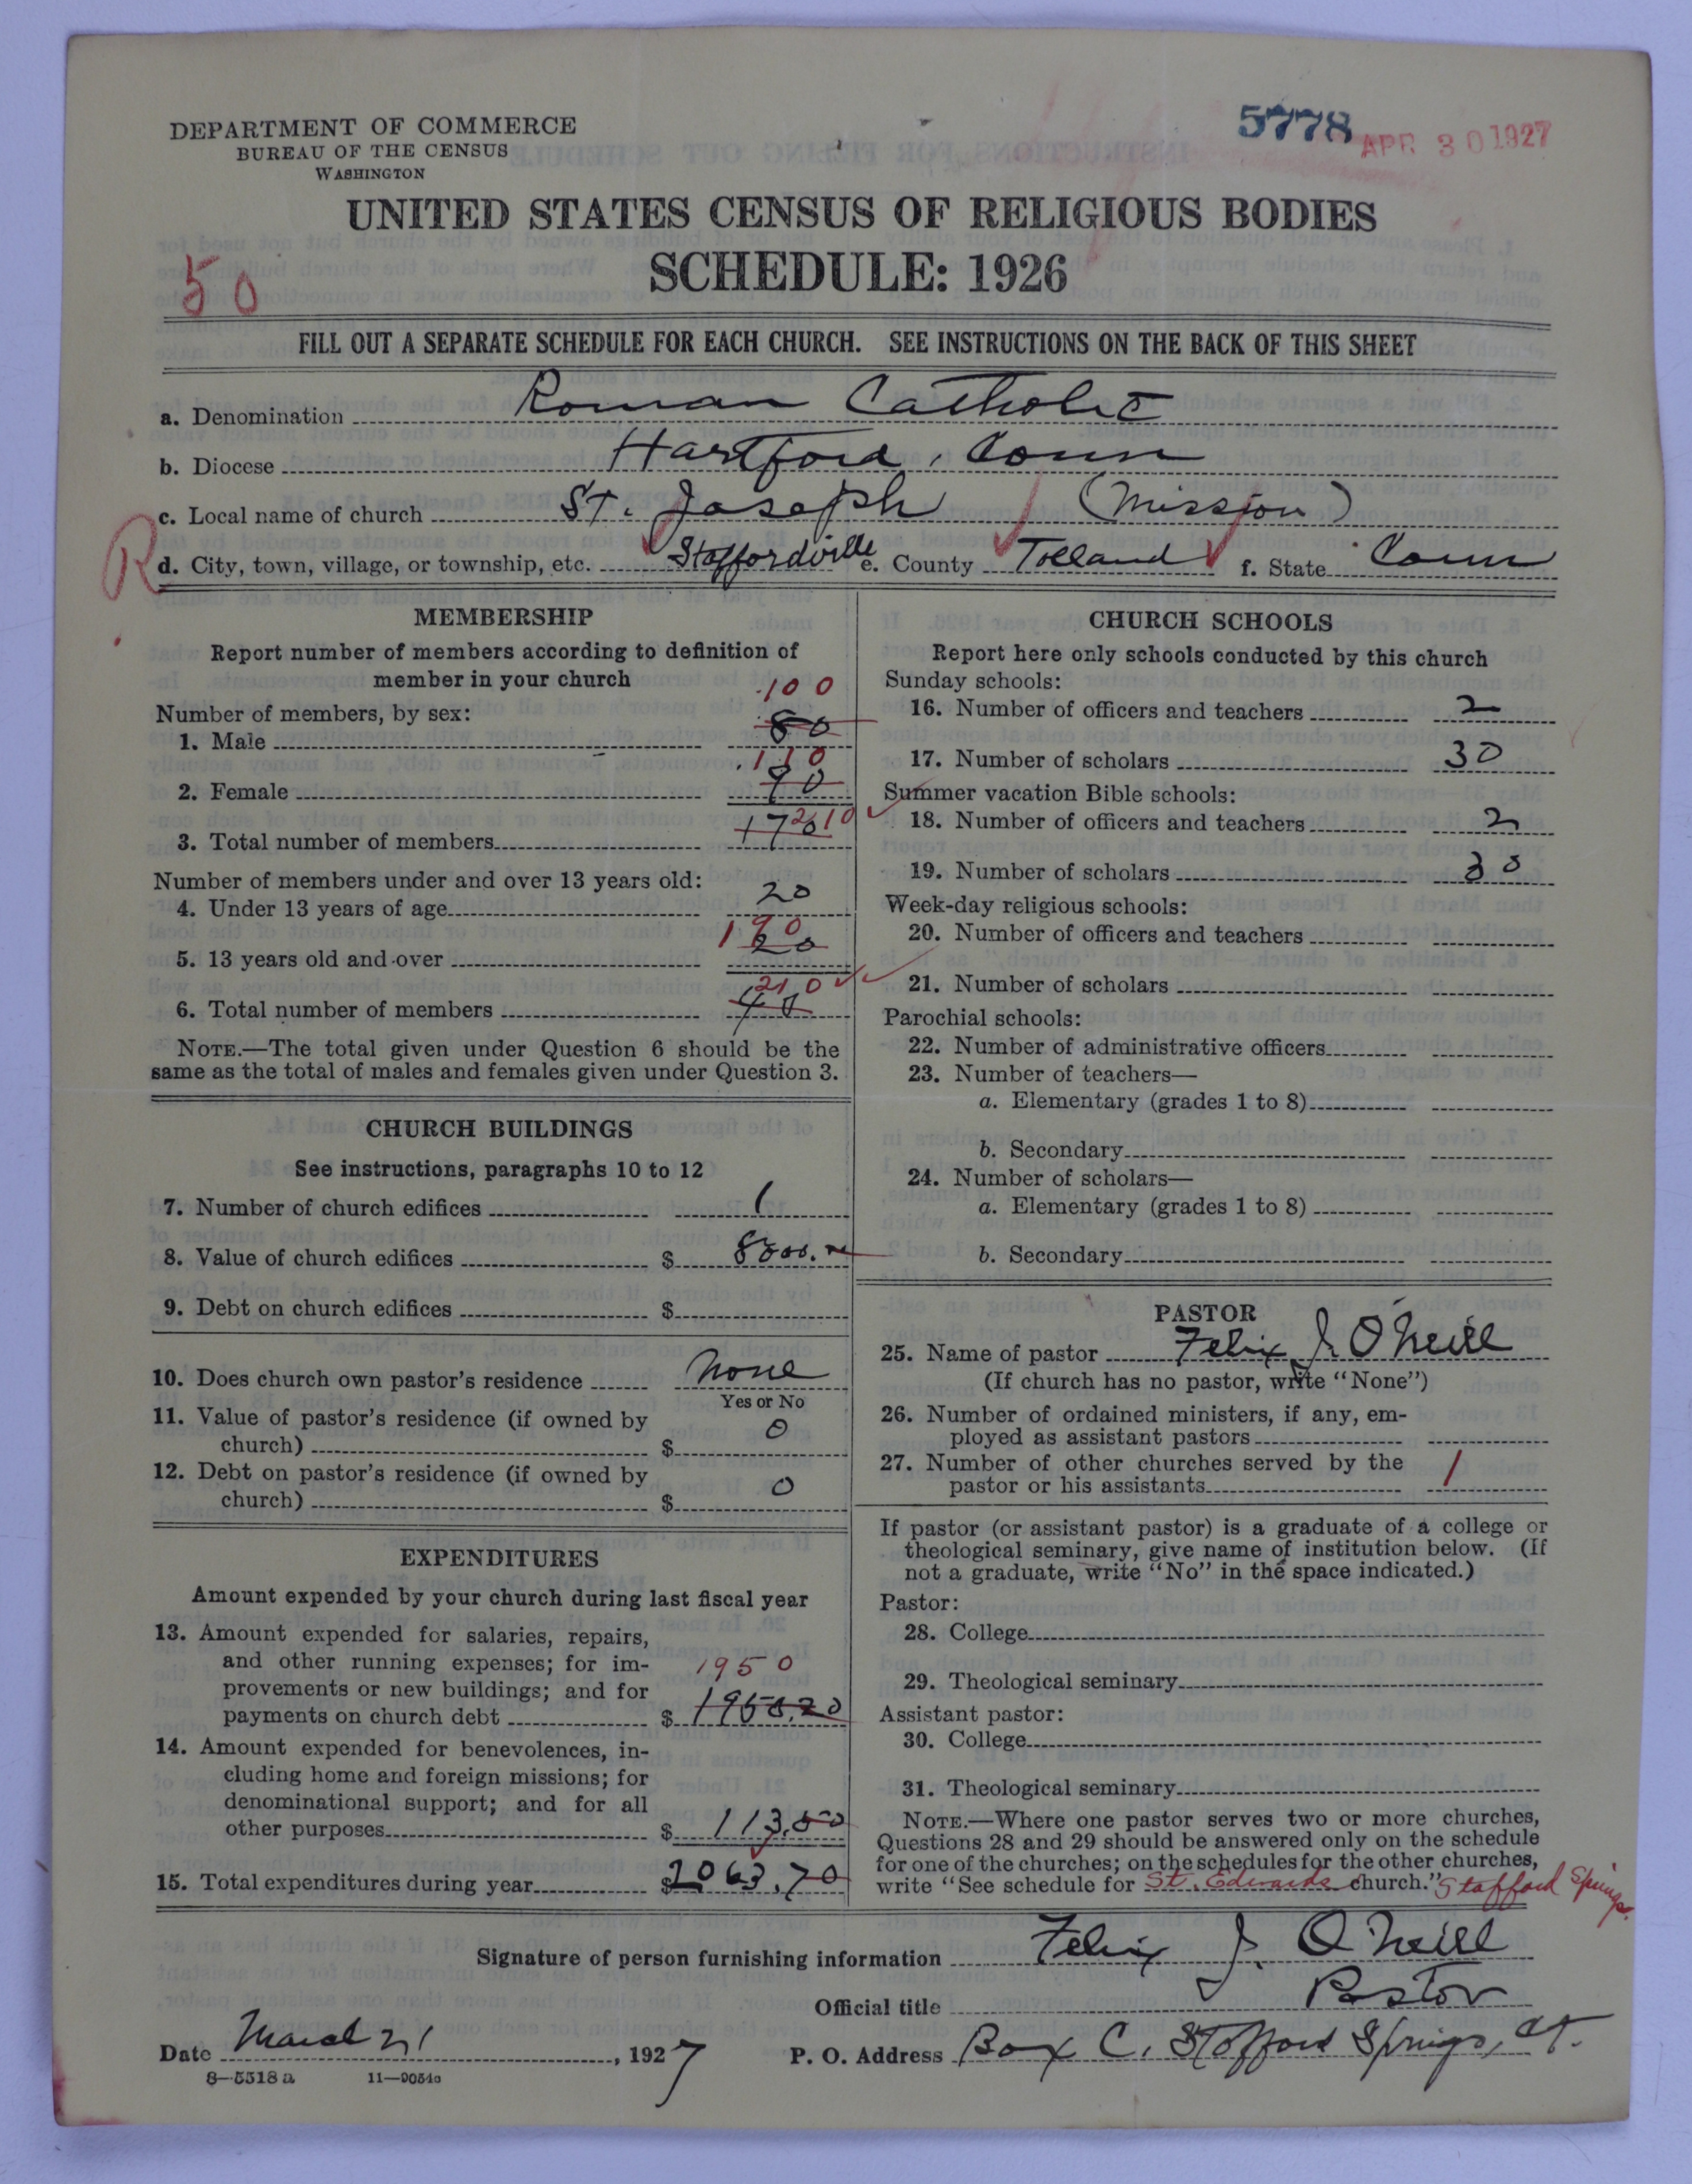 DEPARTMENT OF COMMERCE
BUREAU OF THE CENSUS
WASHINGTON
5778
APR 30 1927
UNITED STATES CENSUS OF RELIGIOUS BODIES
SCHEDULE: 1926
50
FILL OUT A SEPARATE SCHEDULE FOR EACH CHURCH. SEE INSTRUCTIONS ON THE BACK OF THIS SHEET
a. Denomination Roman Catholic
b. Diocese Hartford, Conn
c. Local name of church St. Joseph (Mission)
R
d. City, town, village, or township, etc. Staffordville e. County Tolland f. State Conn
MEMBERSHIP
Report number of members according to definition of
member in your church
Number of members, by sex:
100
1. Male 80
110
2. Female 90
210
3. Total number of members 170
Number of members under and over 13 years old:
4. Under 13 years of age 20
190
5. 13 years old and over 20
210
6. Total number of members 40
NOTE.—The total given under Question 6 should be the
same as the total of males and females given under Question 3.
CHURCH BUILDINGS
See instructions, paragraphs 10 to 12
7. Number of church edifices 1
8. Value of church edifices $ 8000.
9. Debt on church edifices $
10. Does church own pastor's residence None
Yes or No
11. Value of pastor's residence (if owned by
church) $ 0
12. Debt on pastor's residence (if owned by
church) $ 0
EXPENDITURES
Amount expended by your church during last fiscal year
13. Amount expended for salaries, repairs,
and other running expenses; for im-
provements or new buildings; and for
1950
payments on church debt $ 1950.20
14. Amount expended for benevolences, in-
cluding home and foreign missions; for
denominational support; and for all
other purposes $ 113.50
15. Total expenditures during year $ 2063.70
CHURCH SCHOOLS
Report here only schools conducted by this church
Sunday schools:
16. Number of officers and teachers 2
17. Number of scholars 30
Summer vacation Bible schools:
18. Number of officers and teachers 2
19. Number of scholars 30
Week-day religious schools:
20. Number of officers and teachers
21. Number of scholars
Parochial schools:
22. Number of administrative officers
23. Number of teachers—
a. Elementary (grades 1 to 8)
b. Secondary
24. Number of scholars—
a. Elementary (grades 1 to 8)
b. Secondary
PASTOR
25. Name of pastor Felix J. O'Neill
(If church has no pastor, write "None")
26. Number of ordained ministers, if any, em-
ployed as assistant pastors
27. Number of other churches served by the
pastor or his assistants 1
If pastor (or assistant pastor) is a graduate of a college or
theological seminary, give name of institution below. (If
not a graduate, write "No" in the space indicated.)
Pastor:
28. College
29. Theological seminary
Assistant pastor:
30. College
31. Theological seminary
NOTE.—Where one pastor serves two or more churches,
Questions 28 and 29 should be answered only on the schedule
for one of the churches; on the schedules for the other churches,
write "See schedule for St. Edwards church." Stafford Springs.
Signature of person furnishing information Felix J. O'Neill
Official title Pastor
Date March 21, 1927 P. O. Address Box C, Stafford Springs, Ct.
8—5518 a 11—9054a